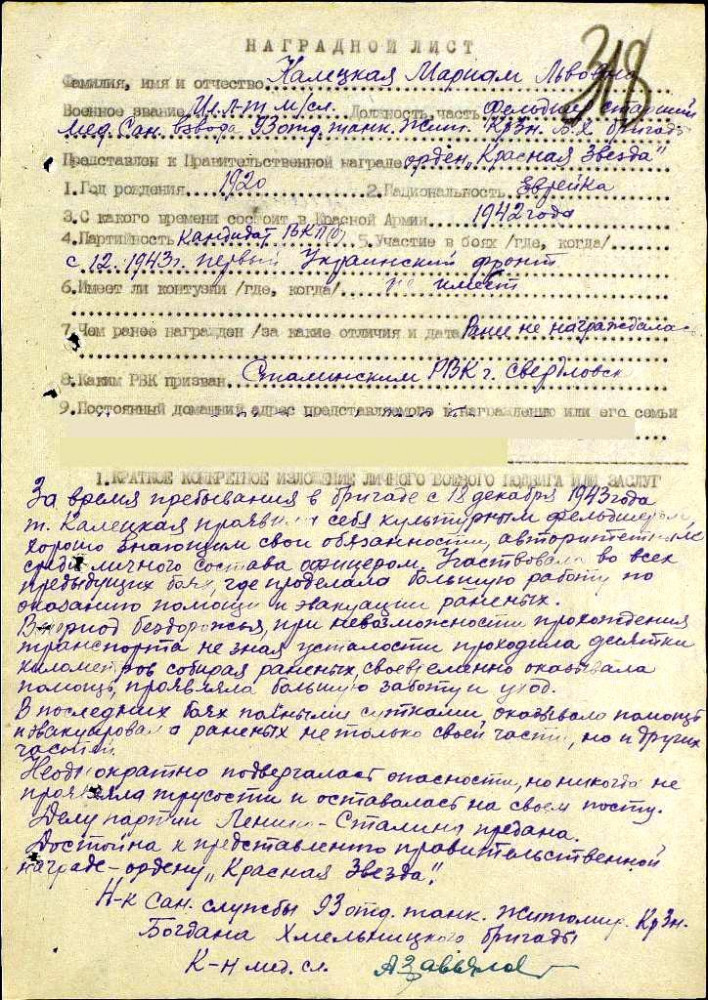 318
НАГРАДНОЙ ЛИСТ
Фамилия, имя и отчество Калецкая Мариам Львовна
Военное звание Мл л-т м/сл. Должность, часть Фельдшер старший
мед. Сан. взвода 93 отд. танк. Жит. КрЗн. Б.Х бригады
Представлен к Правительственной награде орден "Красная Звезда"
1. Год рождения 1920 2. Национальность Еврейка
3. С какого времени состоит в Красной Армии 1942 года
4. Партийность Кандидат ВКП(б) 5. Участие в боях /где, когда/
с 12.1943г. первый Украинский фронт
6. Имеет ли контузии /где, когда/ не имеет
7. Чем ранее награжден /за какие отличия и дата Ране не награждалась
8. Каким РВК призван Сталинским РВК г. Свердловск
9. Постоянный домашний адрес представляемого к награждению или его семьи
1. КРАТКОЕ КОНКРЕТНОЕ ИЗЛОЖЕНИЕ ЛИЧНОГО БОЕВОГО ПОДВИГА ИЛИ ЗАСЛУГ
За время пребывания в бригаде с 18 декабря 1943 года
т. Калецкая проявила себя культурным фельдшером,
хорошо знающим свои обязанности, авторитетным
среди личного состава офицером. Участвовала во всех
предыдущих боях, где проделала большую работу по
оказанию помощи и эвакуации раненых.
В период бездорожья, при невозможности прохождения
транспорта не зная усталости проходила десятки
километров собирая раненых, своевременно оказывала
помощь, проявляла большую заботу и уход.
В последних боях полными сутками, оказывало помощь
и эвакуировала раненых не только своей части, но и других
частей.
Неоднократно подвергалась опасности, но никогда не
проявляла трусости и оставалась на своем посту.
Делу партии Ленина-Сталина предана.
Достойна к представлению правительственной
награде - ордену "Красная Звезда".
Н-к Сан. службы 93 отд. танк. Житомир. КрЗн.
Богдана Хмельницкого бригады
К-н мед. сл.